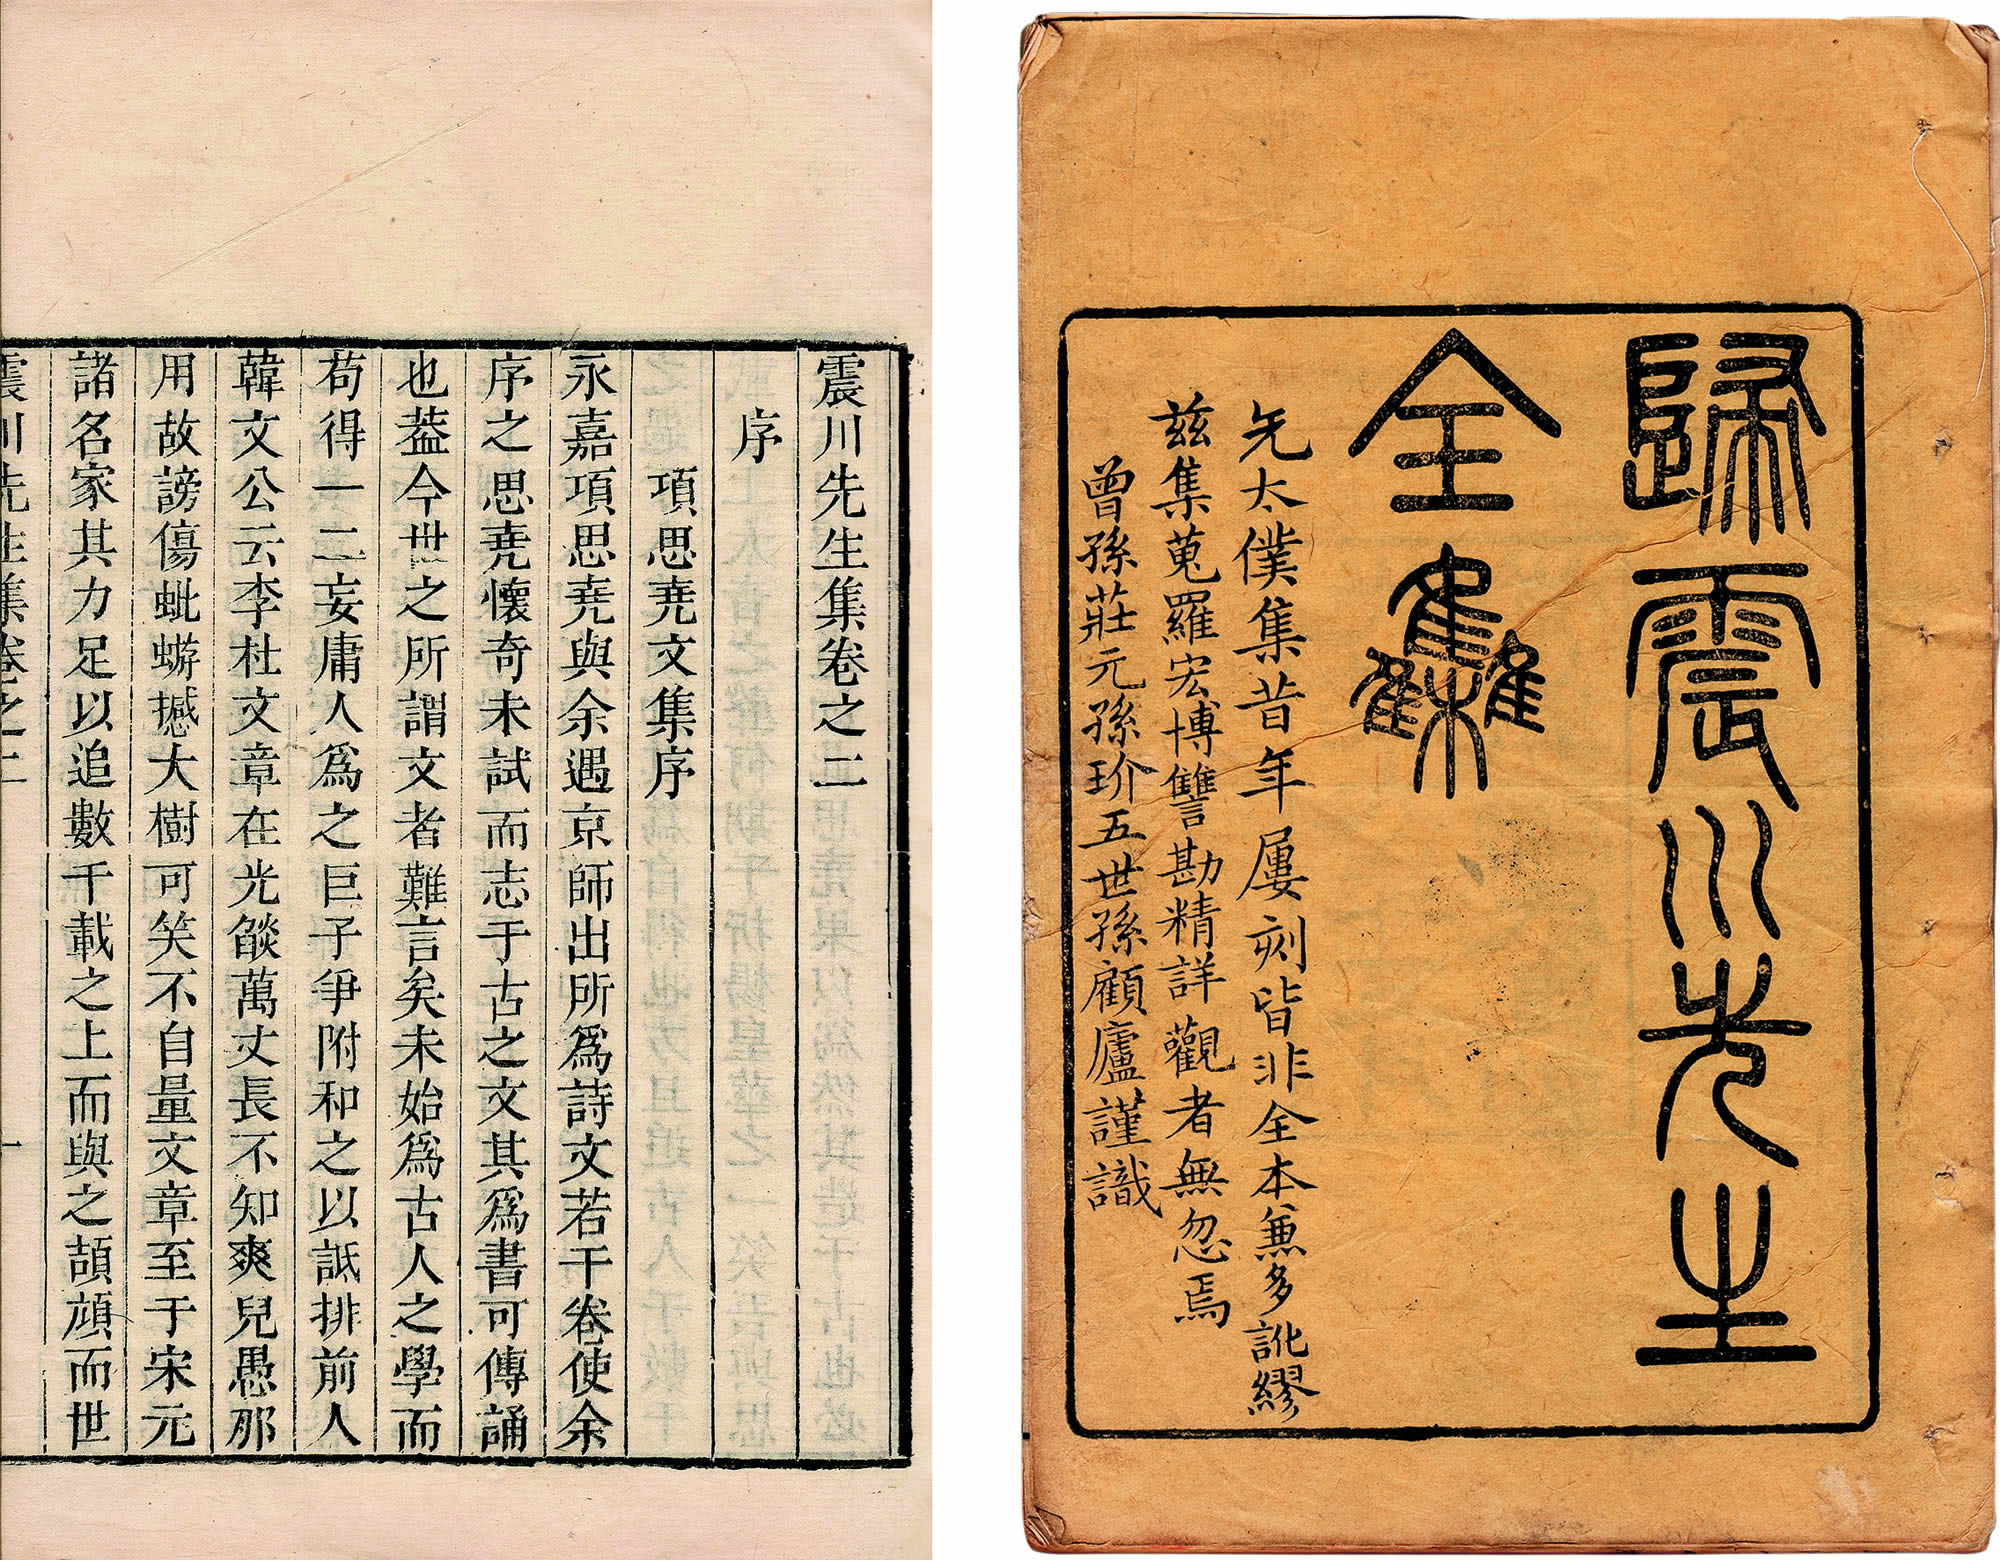 歸震川先生
全集
先太僕集昔年屢刻皆非全本兼多訛繆
茲集蒐羅宏博讐勘精詳觀者無忽焉
曾孫莊元孫玠五世孫顧廬謹識
震川先生集卷之二
序
項思尭文集序
永嘉項思尭與余遇京師出所爲詩文若干卷使余
序之思尭懷奇未試而志于古之文其爲書可傳誦
也葢今世之所謂文者難言矣未始爲古人之學而
苟得一二妄庸人爲之巨子爭附和之以詆排前人
韓文公云李杜文章在光燄萬丈長不知爽兒愚那
用故謗傷蚍蝣撼大樹可笑不自量文章至于宋元
諸名家其力足以追數千載之上而與之頡頏而世
震川先生集卷之二 一